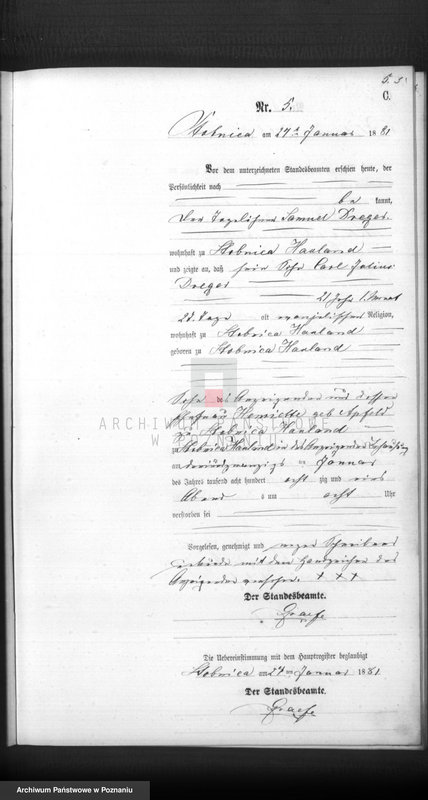 5. 5.
C.
Nr. 5.
Stobnica am 24ten Januar 1881
Vor dem unterzeichneten Standesbeamten erschien heute, der
Persönlichkeit nach
be kannt,
Der Tagelöhner Samuel Dreger
wohnhaft zu Stobnica Hauland
und zeigte an, daß sein Sohn Carl Julius
Dreger
21 Jahr 1 Monat
28 Tage alt evangelischer Religion,
wohnhaft zu Stobnica Hauland
geboren zu Stobnica Hauland
Sohn des Anzeigenden und dessen
Ehefrau Henriette geb Apfeld
zu Stobnica Hauland
zu Stobnica Hauland in des Anzeigenden Behausung
am dreiundzwanzigsten Januar
des Jahres tausend acht hundert acht zig und eins
Abends um acht Uhr
verstorben sei
Vorgelesen, genehmigt und wegen Schreibens
mit dem Handzeichen des
Anzeigenden versehen. + + +
Der Standesbeamte.
Graefe
Die Uebereinstimmung mit dem Hauptregister beglaubigt
Stobnica am 24ten Januar 1881
Der Standesbeamte.
Graefe
ARCHIWUM PAŃSTWOWE
W POZNANIU
Archiwum Państwowe w Poznaniu